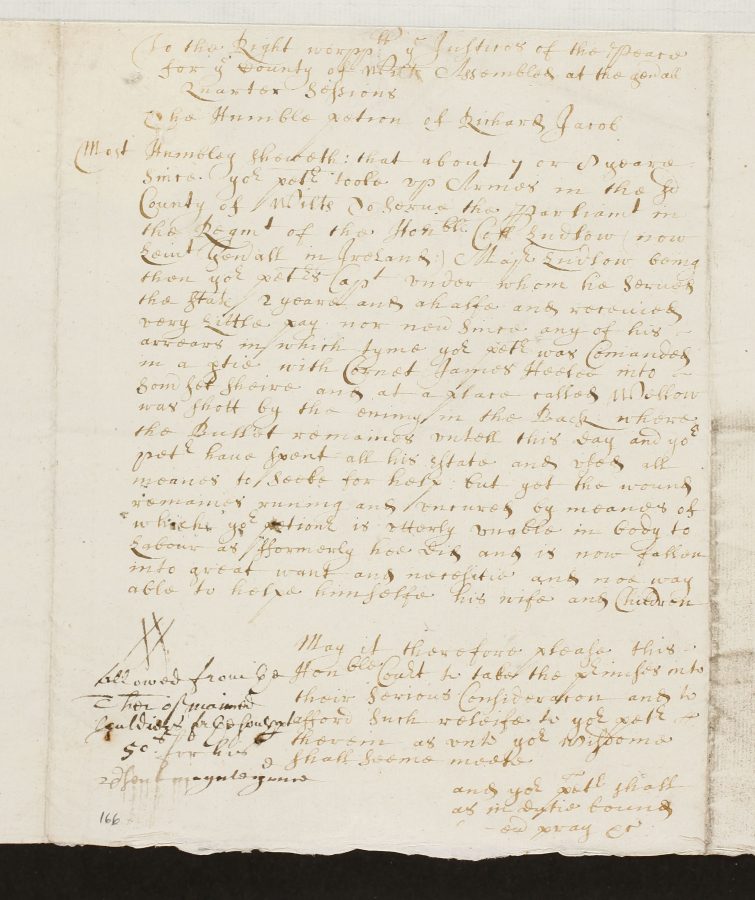 To the Right worpp:ll ye Justices of the Peace
for ye County of Wilts Assembled at the genall
Quarter Sessions
The Humble petion of Richard Jacob
Most Humbley sheweth: that about 7 or 8 yeare
since yor petr: tooke up Armes in the sd
County of Wilts To serve the Parliamt in
the Regmt of the Honble Coll Ludlow (now
Leint Genall in Ireland:) Majr Ludlow being
then yor petrs Capt under whom he served
the State 2 yeares and ahalfe and received
very Little pay nor never since any of his
arrears in which tyme yor petr was Comanded
in a ptie with Cornet James Heeley into
Somset sheire and at a place called Wellow
was shott by the enimy in the Back where
the Bullet remaines untill this day and yor
petr have spent all his estate and used all
meanes to seeke for help but yet the wound
remaines runing and uncured by meanes of
which yor petionr is utterly unable in body to
Labour as fformerly hee did and is now fallen
into great want and necesitie and noe way
able to helpe himselfe his wife and Children
May it therefore please this
Honble Court to take the pmises into
their serious Consideracon and to
afford such releife to yor petr
therein as unto yor Wisdome
shall seeme meete
and yor Petr shall
as in dutie bound
pray &c
Allowed from ye
Ther of maimed
souldiers
50s for his
psent mayntenance
166